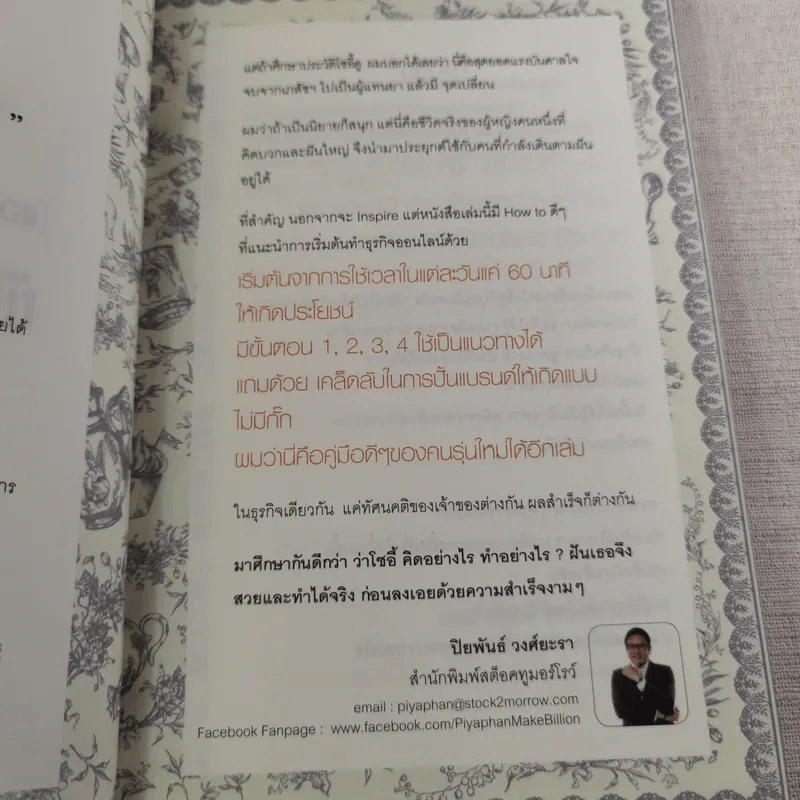 ”
ยได้
าร
แต่ถ้าศึกษาประวัติโซอี้ดู ผมบอกได้เลยว่า นี่คือสุดยอดแรงบันดาลใจ
จบจากเภสัชฯ ไปเป็นผู้แทนยา แล้วมี จุดเปลี่ยน
ผมว่าถ้าเป็นนิยายก็สนุก แต่นี่คือชีวิตจริงของผู้หญิงคนหนึ่งที่
คิดบวกและฝันใหญ่ จึงนำมาประยุกต์ใช้กับคนที่กำลังเดินตามฝัน
อยู่ได้
ที่สำคัญ นอกจากจะ Inspire แต่หนังสือเล่มนี้มี How to ดีๆ
ที่แนะนำการเริ่มต้นทำธุรกิจออนไลน์ด้วย
เริ่มต้นจากการใช้เวลาในแต่ละวันแค่ 60 นาที
ให้เกิดประโยชน์
มีขั้นตอน 1, 2, 3, 4 ใช้เป็นแนวทางได้
แถมด้วย เคล็ดลับในการปั้นแบรนด์ให้เกิดแบบ
ไม่มีกั๊ก
ผมว่านี่คือคู่มือดีๆของคนรุ่นใหม่ได้อีกเล่ม
ในธุรกิจเดียวกัน แค่ทัศนคติของเจ้าของต่างกัน ผลสำเร็จก็ต่างกัน
มาศึกษากันดีกว่า ว่าโซอี้ คิดอย่างไร ทำอย่างไร ? ฝันเธอจึง
สวยและทำได้จริง ก่อนลงเอยด้วยความสำเร็จงามๆ
ปิยพันธ์ วงศ์ยะรา
สำนักพิมพ์สต็อคทูมอร์โรว์
email : piyaphan@stock2morrow.com
Facebook Fanpage : www.facebook.com/PiyaphanMakeBillion